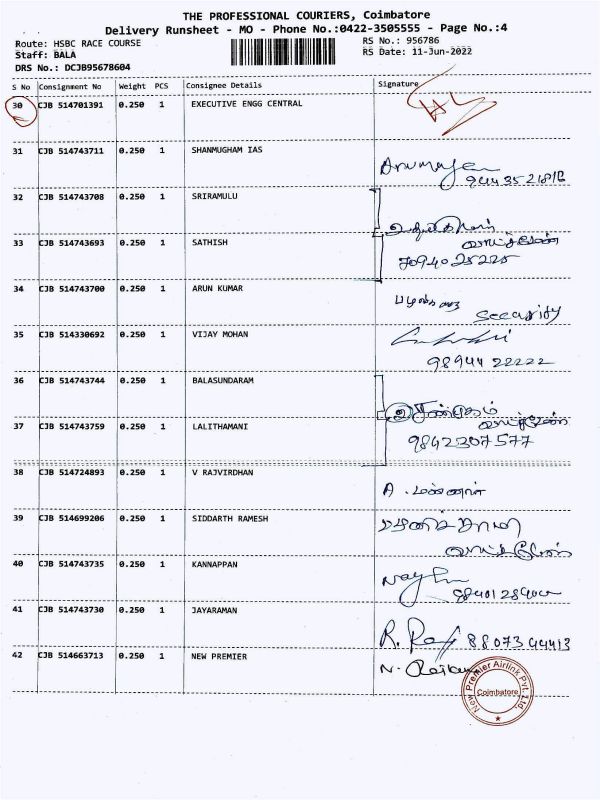 THE PROFESSIONAL COURIERS, Coimbatore
Delivery Runsheet - MO - Phone No.:0422-3505555 - Page No.:4
Route: HSBC RACE COURSE
RS No.: 956786
Staff: BALA
RS Date: 11-Jun-2022
DRS No.: DCJB95678604
S No Consignment No Weight PCS Consignee Details Signature
30 CJB 514701391 0.250 1 EXECUTIVE ENGG CENTRAL
31 CJB 514743711 0.250 1 SHANMUGHAM IAS
32 CJB 514743708 0.250 1 SRIRAMULU
33 CJB 514743693 0.250 1 SATHISH
34 CJB 514743700 0.250 1 ARUN KUMAR
Security
35 CJB 514330692 0.250 1 VIJAY MOHAN
98944 22222
36 CJB 514743744 0.250 1 BALASUNDARAM
37 CJB 514743759 0.250 1 LALITHAMANI
9842307577
38 CJB 514724893 0.250 1 V RAJVIRDHAN
39 CJB 514699206 0.250 1 SIDDARTH RAMESH
40 CJB 514743735 0.250 1 KANNAPPAN
41 CJB 514743730 0.250 1 JAYARAMAN
42 CJB 514663713 0.250 1 NEW PREMIER
New Premier Airlink Pvt. Ltd.
Coimbatore